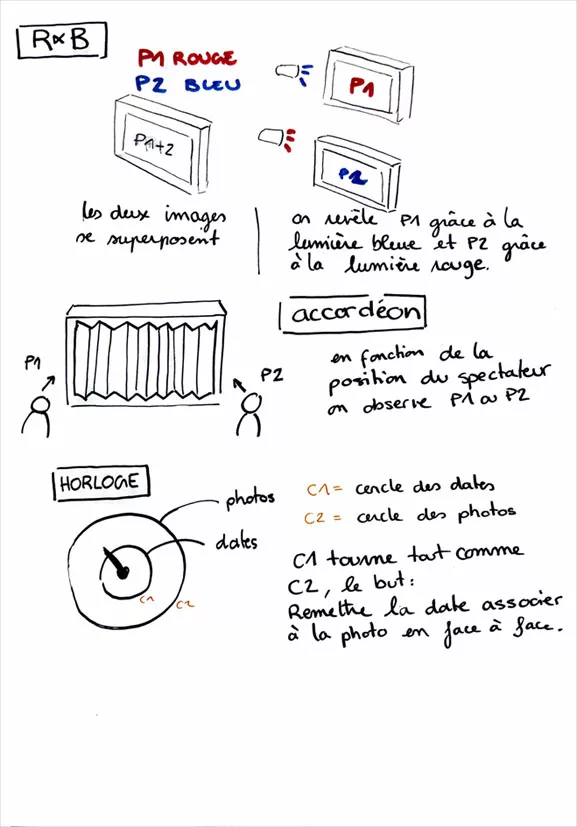 R×B
P1 ROUGE
P2 BLEU
P1
P1+2
P2
les deux images
se superposent
on revèle P1 grâce à la
lumière bleue et P2 grâce
à la lumière rouge.
accordéon
P1
P2
en fonction de la
position du spectateur
on observe P1 ou P2
HORLOGE
photos
dates
C1
C2
C1 = cercle des dates
C2 = cercle des photos
C1 tourne tout comme
C2, le but :
Remettre la date associer
à la photo en face à face.